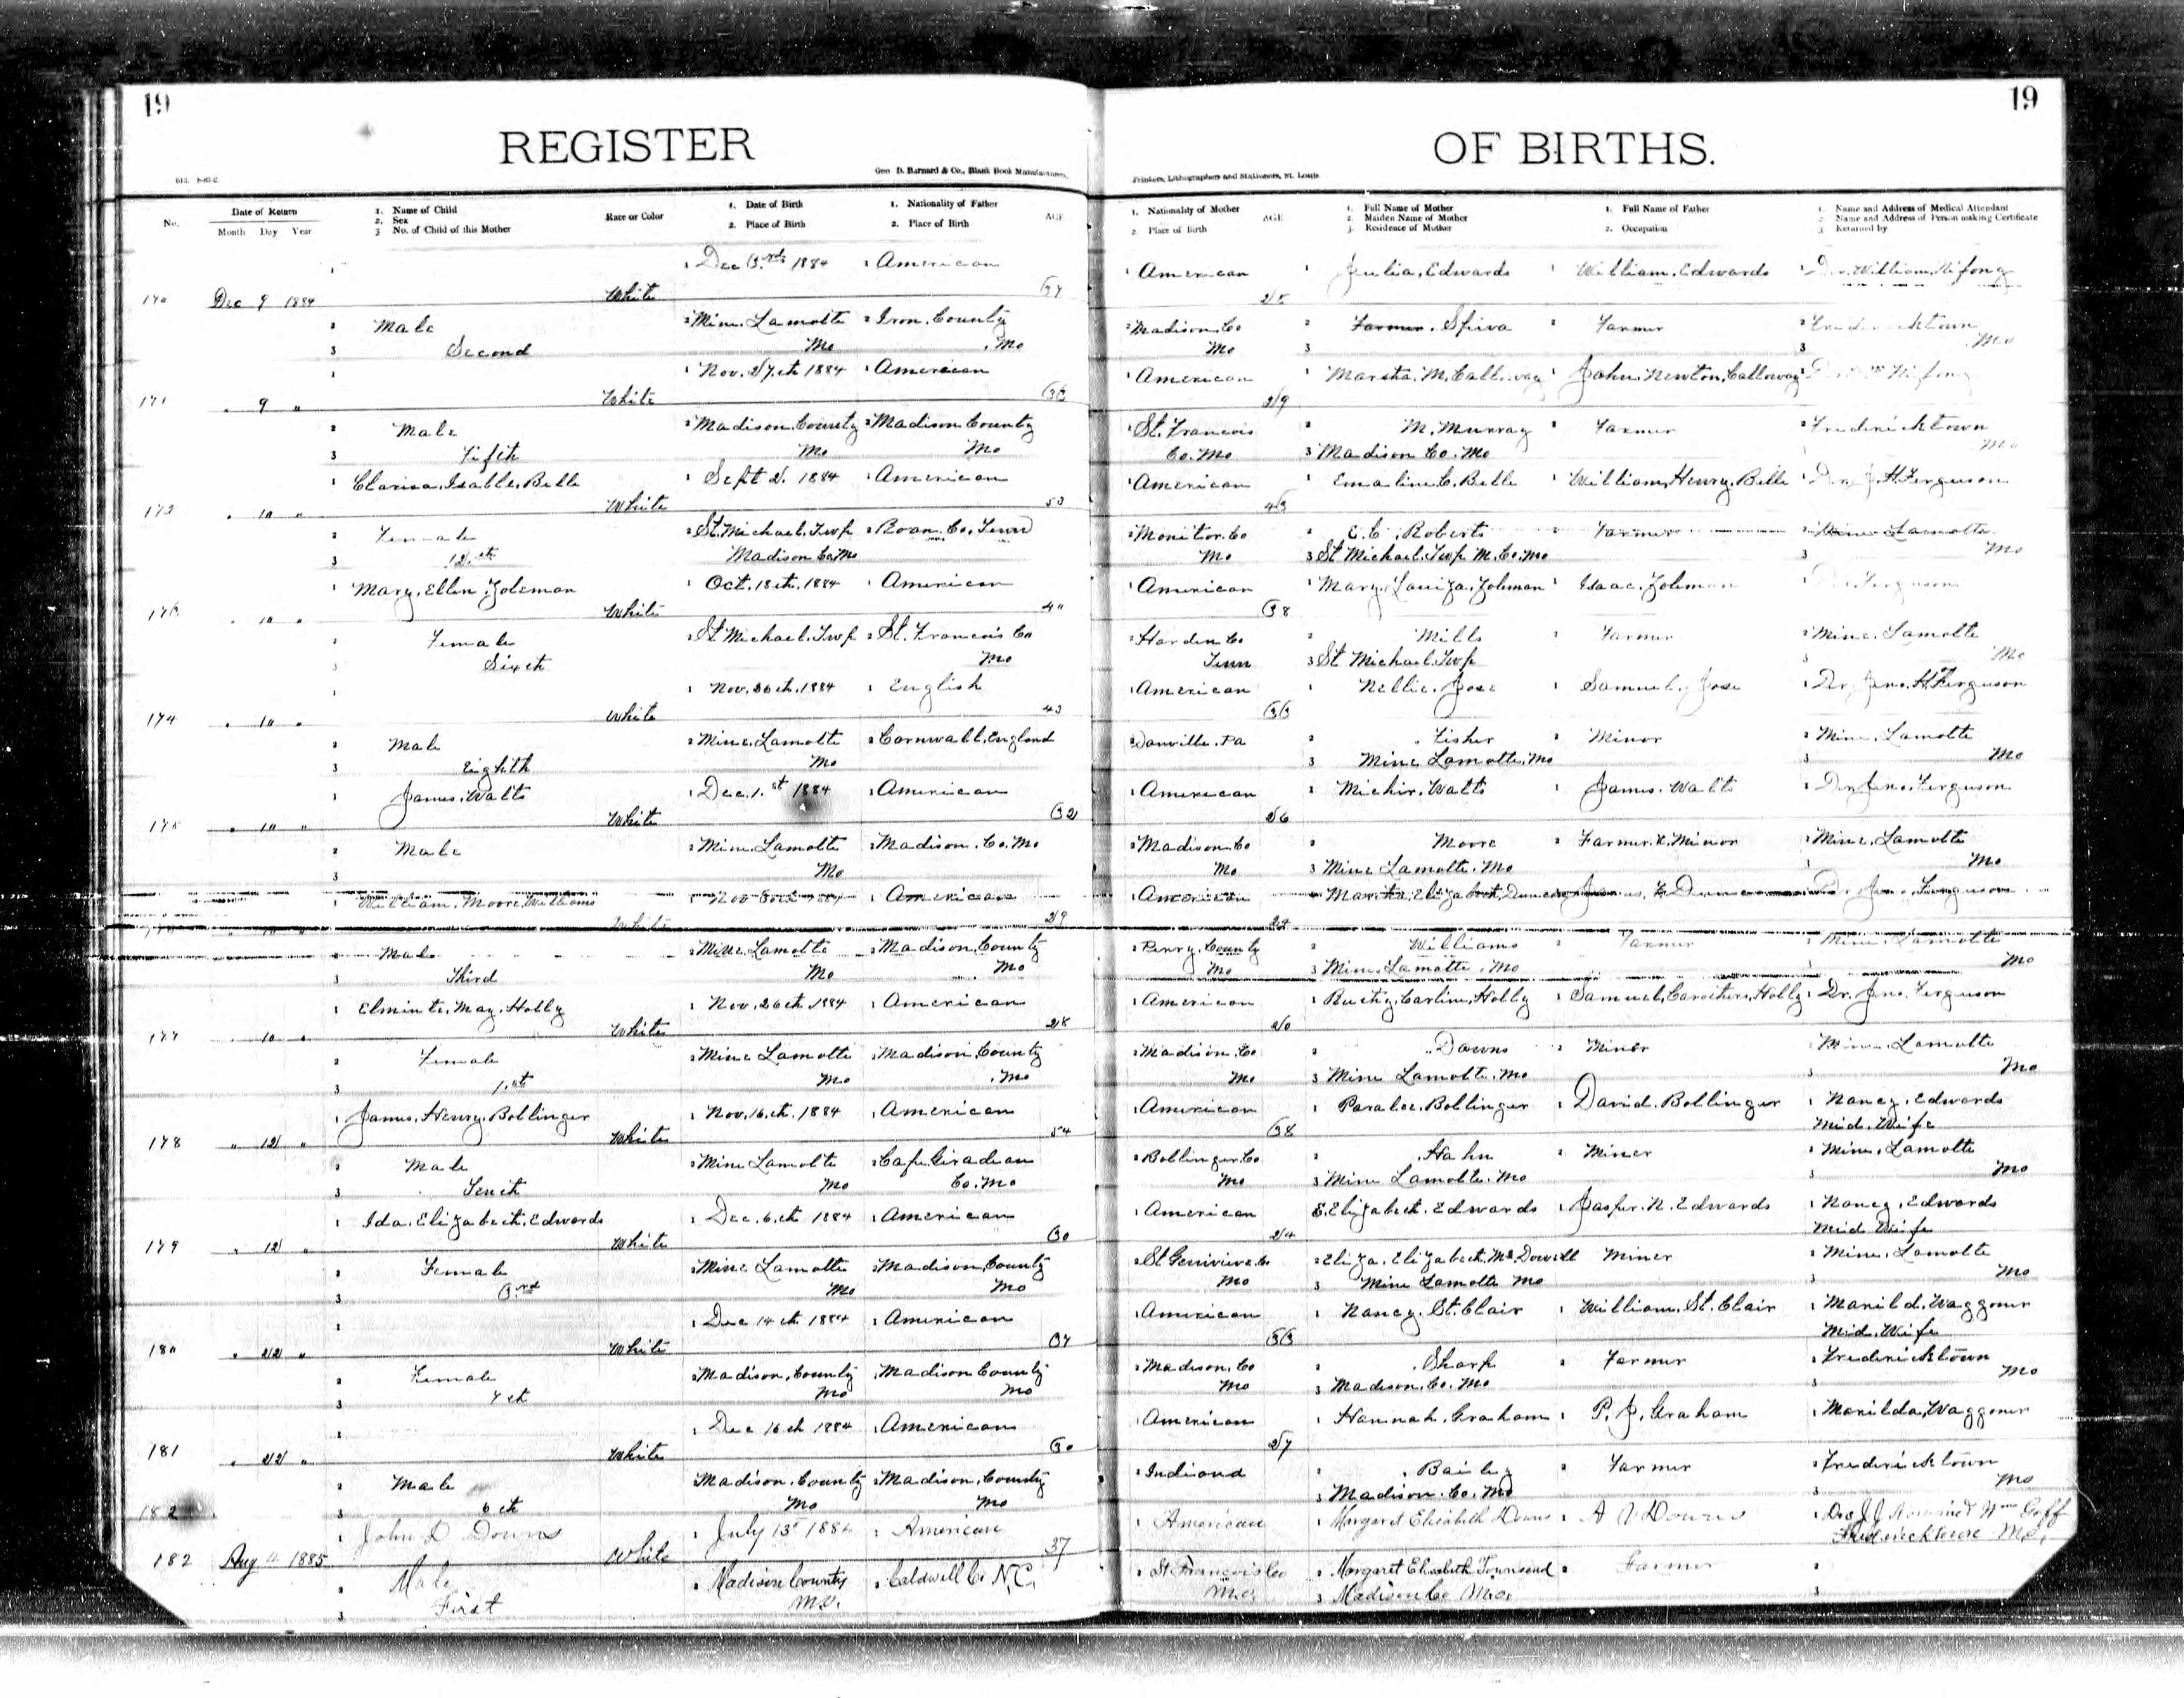 19 19
REGISTER OF BIRTHS.
Geo. D. Barnard & Co., Blank Book Manufacturers, Printers, Lithographers and Stationers, St. Louis
No. Date of Return 1. Name of Child Race or Color 1. Date of Birth 1. Nationality of Father AGE 1. Nationality of Mother AGE 1. Full Name of Mother 1. Full Name of Father 1. Name and Address of Medical Attendant
Month Day Year 2. Sex 2. Place of Birth 2. Place of Birth 2. Place of Birth 2. Maiden Name of Mother 2. Occupation 2. Name and Address of Person making Certificate
3 No. of Child of this Mother 3. Residence of Mother 3 Returned by
1 1 Dec 3.rd 1884 1 American 1 American 1 Julia, Edwards 1 William, Edwards 1 Dr. William, Nifong
170 Dec 9 1884 White 37 25
2 Male 2 Mine. Lamotte 2 Iron. County 2 Madison. Co 2 Farmer. Spiva 2 Farmer 2 Fredericktown
3 Second Mo Mo Mo 3 3 Mo
1 1 Nov. 27th 1884 1 American 1 American 1 Martha. M. Calloway John. Newton, Calloway Nifong
171 " 9 " White 33 29
2 Male 2 Madison. County 2 Madison County 2 St. Francois 2 M. Murray 2 Farmer 2 Fredericktown
3 Fifth Mo Mo Co. Mo 3 Madison Co. Mo Mo
1 Clarisa. Isable. Belle 1 Sept 2. 1884 1 American 1 American 1 Emaline C. Belle 1 William, Henry. Belle 1 Dr. J. H. Ferguson
172 " 10 " White 53 43
2 Female 2 St. Michael. Twp 2 Roan. Co. Tenn 2 Moniter. Co 2 E. C. Roberts 2 Farmer 2 Mine Lamotte
3 12.th Madison Co. Mo Mo 3 St Michael. Twp M. Co. Mo 3 Mo
1 Mary. Ellen. Zoleman 1 Oct. 18th. 1884 1 American 1 American 1 Mary. Louiza. Zoleman 1 Isaac. Zoleman 1 Dr. Ferguson
173 " 10 " White 40 38
2 Female 2 St Michael. Twp 2 St. Francois Co 2 Harden Co 2 Mills 2 Farmer 2 Mine. Lamotte
3 Sixth Mo Tenn 3 St Michael. Twp 3 Mo
1 1 Nov. 26th. 1884 1 English 1 American 1 Nellie. Jose 1 Samuel. Jose 1 Dr. Jno. H. Ferguson
174 " 10 " White 43 33
2 Male 2 Mine. Lamotte 2 Cornwall. England 2 Danville. Pa 2 Fisher 2 Minor 2 Mine. Lamotte
3 Eighth Mo 3 Mine Lamotte, Mo 3 Mo
1 James. Watts 1 Dec. 1.st 1884 1 American 1 American 1 Watts 1 James. Watts 1 Dr. Jno. Ferguson
175 " 10 " White 32 26
2 Male 2 Mine. Lamotte 2 Madison. Co. Mo 2 Madison Co 2 Moore 2 Farmer. & Minor 2 Mine. Lamotte
3 Mo Mo 3 Mine Lamotte. Mo 3 Mo
1 William. Moore. Williams 1 Nov 1884 1 American 1 American 1 Martha. Elizabeth. Dr. Jno. Ferguson
10 White 29 24
2 Male 2 Mine. Lamotte 2 Madison. County 2 Perry. County 2 Williams 2 Farmer 2 Mine. Lamotte
3 Third Mo Mo Mo 3 Mine. Lamotte. Mo 3 Mo
1 Elminte. May. Holly 1 Nov. 26th 1884 1 American 1 American 1 Carline, Holly 1 Samuel, Carothers, Holly 1 Dr. Jno. Ferguson
177 " 10 " White 28 20
2 Female 2 Mine Lamotte 2 Madison, County 2 Madison. Co 2 Downs 2 Miner 2 Mine. Lamotte
3 1.st Mo Mo Mo 3 Mine Lamotte. Mo 3 Mo
1 James. Henry. Bollinger 1 Nov. 16.th. 1884 1 American 1 American 1 Paralee. Bollinger 1 David. Bollinger 1 Nancy. Edwards
178 " 12 " White 54 38 Mid. Wife
2 Male 2 Mine Lamotte 2 Cape Giradeau 2 Bollinger. Co 2 Hahn 2 Miner 2 Mine. Lamotte
3 Tenth Mo Co. Mo Mo 3 Mine Lamotte. Mo 3 Mo
1 Ida. Elizabeth. Edwards 1 Dec. 6.th 1884 1 American 1 American E. Elizabeth. Edwards 1 Jasper. N. Edwards 1 Nancy. Edwards
179 " 12 " White 30 24 Mid Wife
2 Female 2 Mine Lamotte 2 Madison, County 2 St Genivieve. Co 2 Eliza. Elizabeth. McDowell Miner 2 Mine. Lamotte
3 3rd Mo Mo Mo 3 Mine Lamotte Mo 3 Mo
1 1 Dec 14th 1884 1 American 1 American 1 Nancy. St. Clair 1 William. St. Clair 1 Marild. Waggoner
180 " 22 " White 37 33 Mid. Wife
2 Female 2 Madison, County 2 Madison County 2 Madison. Co 2 Sharp 2 Farmer 2 Fredericktown
3 7th Mo Mo Mo 3 Madison. Co. Mo 3 Mo
1 1 Dec 16th 1884 1 American 1 American 1 Hannah. Graham 1 P. J. Graham 1 Marilda, Waggoner
181 " 22 " White 30 27
2 Male Madison. County 2 Madison, County 2 Indiand 2 Bailey 2 Farmer 2 Fredericktown
182 3 6th Mo Mo 3 Madison. Co. Mo 3 Mo
1 John D Downs 1 July 13th 1884 1 American 1 American 1 Margaret Elizabeth Downs 1 A V Downs 1 Drs J J and Wm Goff
182 Aug 4 1885 White 37 Fredericktown Mo,
2 Male 2 Madison County 2 Caldwell Co N.C. 2 St. Francois Co 2 Margaret Elizabeth Townsend 2 Farmer 2
3 First Mo. Mo. 3 Madison Co Mo. 3